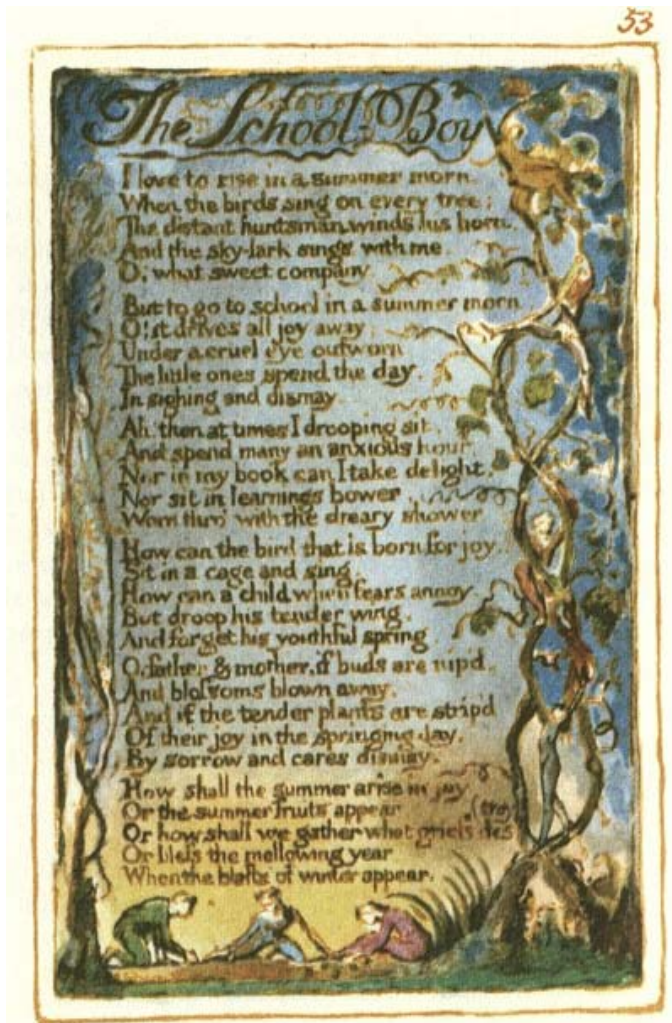 53
The School-Boy
I love to rise in a summer morn.
When the birds sing on every tree;
The distant huntsman winds his horn.
And the sky-lark sings with me.
O! what sweet company.
But to go to school in a summer morn
O! it drives all joy away;
Under a cruel eye outworn
The little ones spend the day.
In sighing and dismay.
Ah! then at times I drooping sit.
And spend many an anxious hour.
Nor in my book can I take delight.
Nor sit in learnings bower.
Worn thro' with the dreary shower
How can the bird that is born for joy.
Sit in a cage and sing.
How can a child when fears annoy.
But droop his tender wing.
And forget his youthful spring
O, father & mother, if buds are nip'd.
And blossoms blown away.
And if the tender plants are strip'd
Of their joy in the springing day.
By sorrow and cares dismay.
How shall the summer arise in joy
Or the summer fruits appear
(troy
Or how shall we gather what griefs des
Or bless the mellowing year
When the blasts of winter appear.